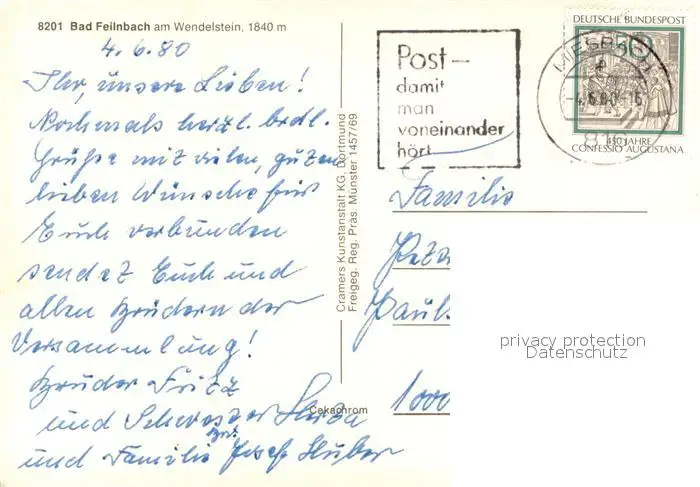 8201 Bad Feilnbach am Wendelstein, 1840 m
4.6.80
Ihr, unsere Lieben!
Nochmals herzl. brdl.
Grüße mit vielen, guten
lieben Wünsche für
Euch verbunden
sendet Euch und
allen Brüdern der
Versammlung!
Bruder Fritz
und Schwester
und Familie Josef Huber
Cramers Kunstanstalt KG, Dortmund
Freigeg. Reg. Präs. Münster 1457/69
Cekachrom
Post-
damit
man
voneinander
hört
MIESBACH
-4.6.80-16
DEUTSCHE BUNDESPOST
50
450 JAHRE
CONFESSIO AUGUSTANA
Familie
Paul
1000
privacy protection
Datenschutz